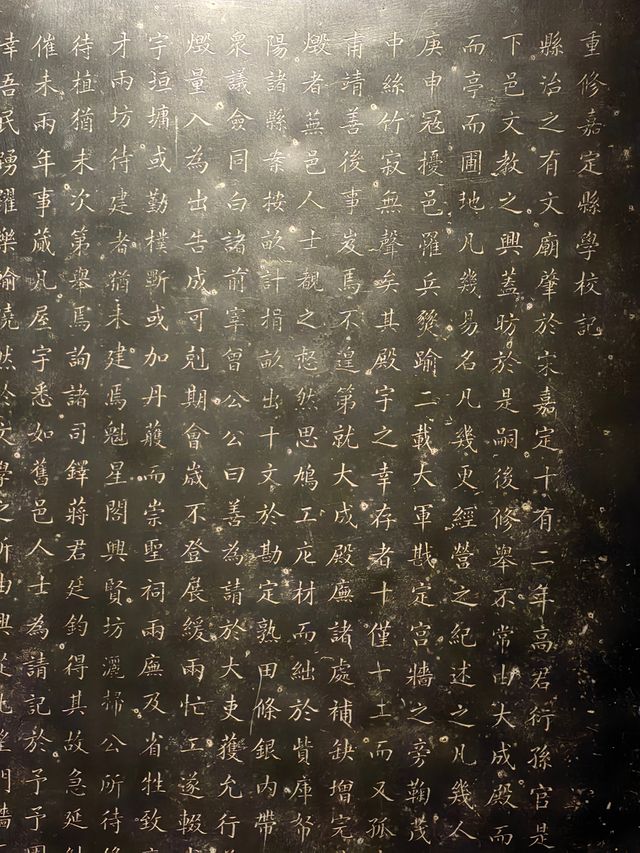 重修嘉定縣學校記
縣治之有文廟肇於宋嘉定十有二年高君衍孫官是
下邑文教之興蓋昉於是嗣後修舉不常由大成殿而
而亭而圃地凡幾易名凡幾更經營之紀述之凡幾人
庚申冠擾邑罹兵發踰二載大軍戡定宫牆之旁鞠茂
中絲竹寂無聲矣其殿宇之幸存者十僅一土而又孤
甫靖善後事岌焉不遑第就大成殿廡諸處補缺增完
燬者蕪邑人士覩之惄然思鳩工庀材而絀於貲庫帑
陽諸縣案按畝計捐畝出十文於勘定熟田條銀内帶
衆議僉同白諸前宰曾公公曰善為請於大吏獲允行
燬量入為出告成可剋期會歲不登展緩兩忙工遂輟
宇垣墉或勤樸斲或加丹雘而崇聖祠兩廡及省牲致
才兩坊待建者猶未建焉魁星閣興賢坊灑掃公所待
待植猶未次第舉焉詢諸司鐸蔣君廷鈞得其故急延
催未兩年事蕆凡屋宇悉如舊邑人士為請記於予予
幸吾民踴躍樂